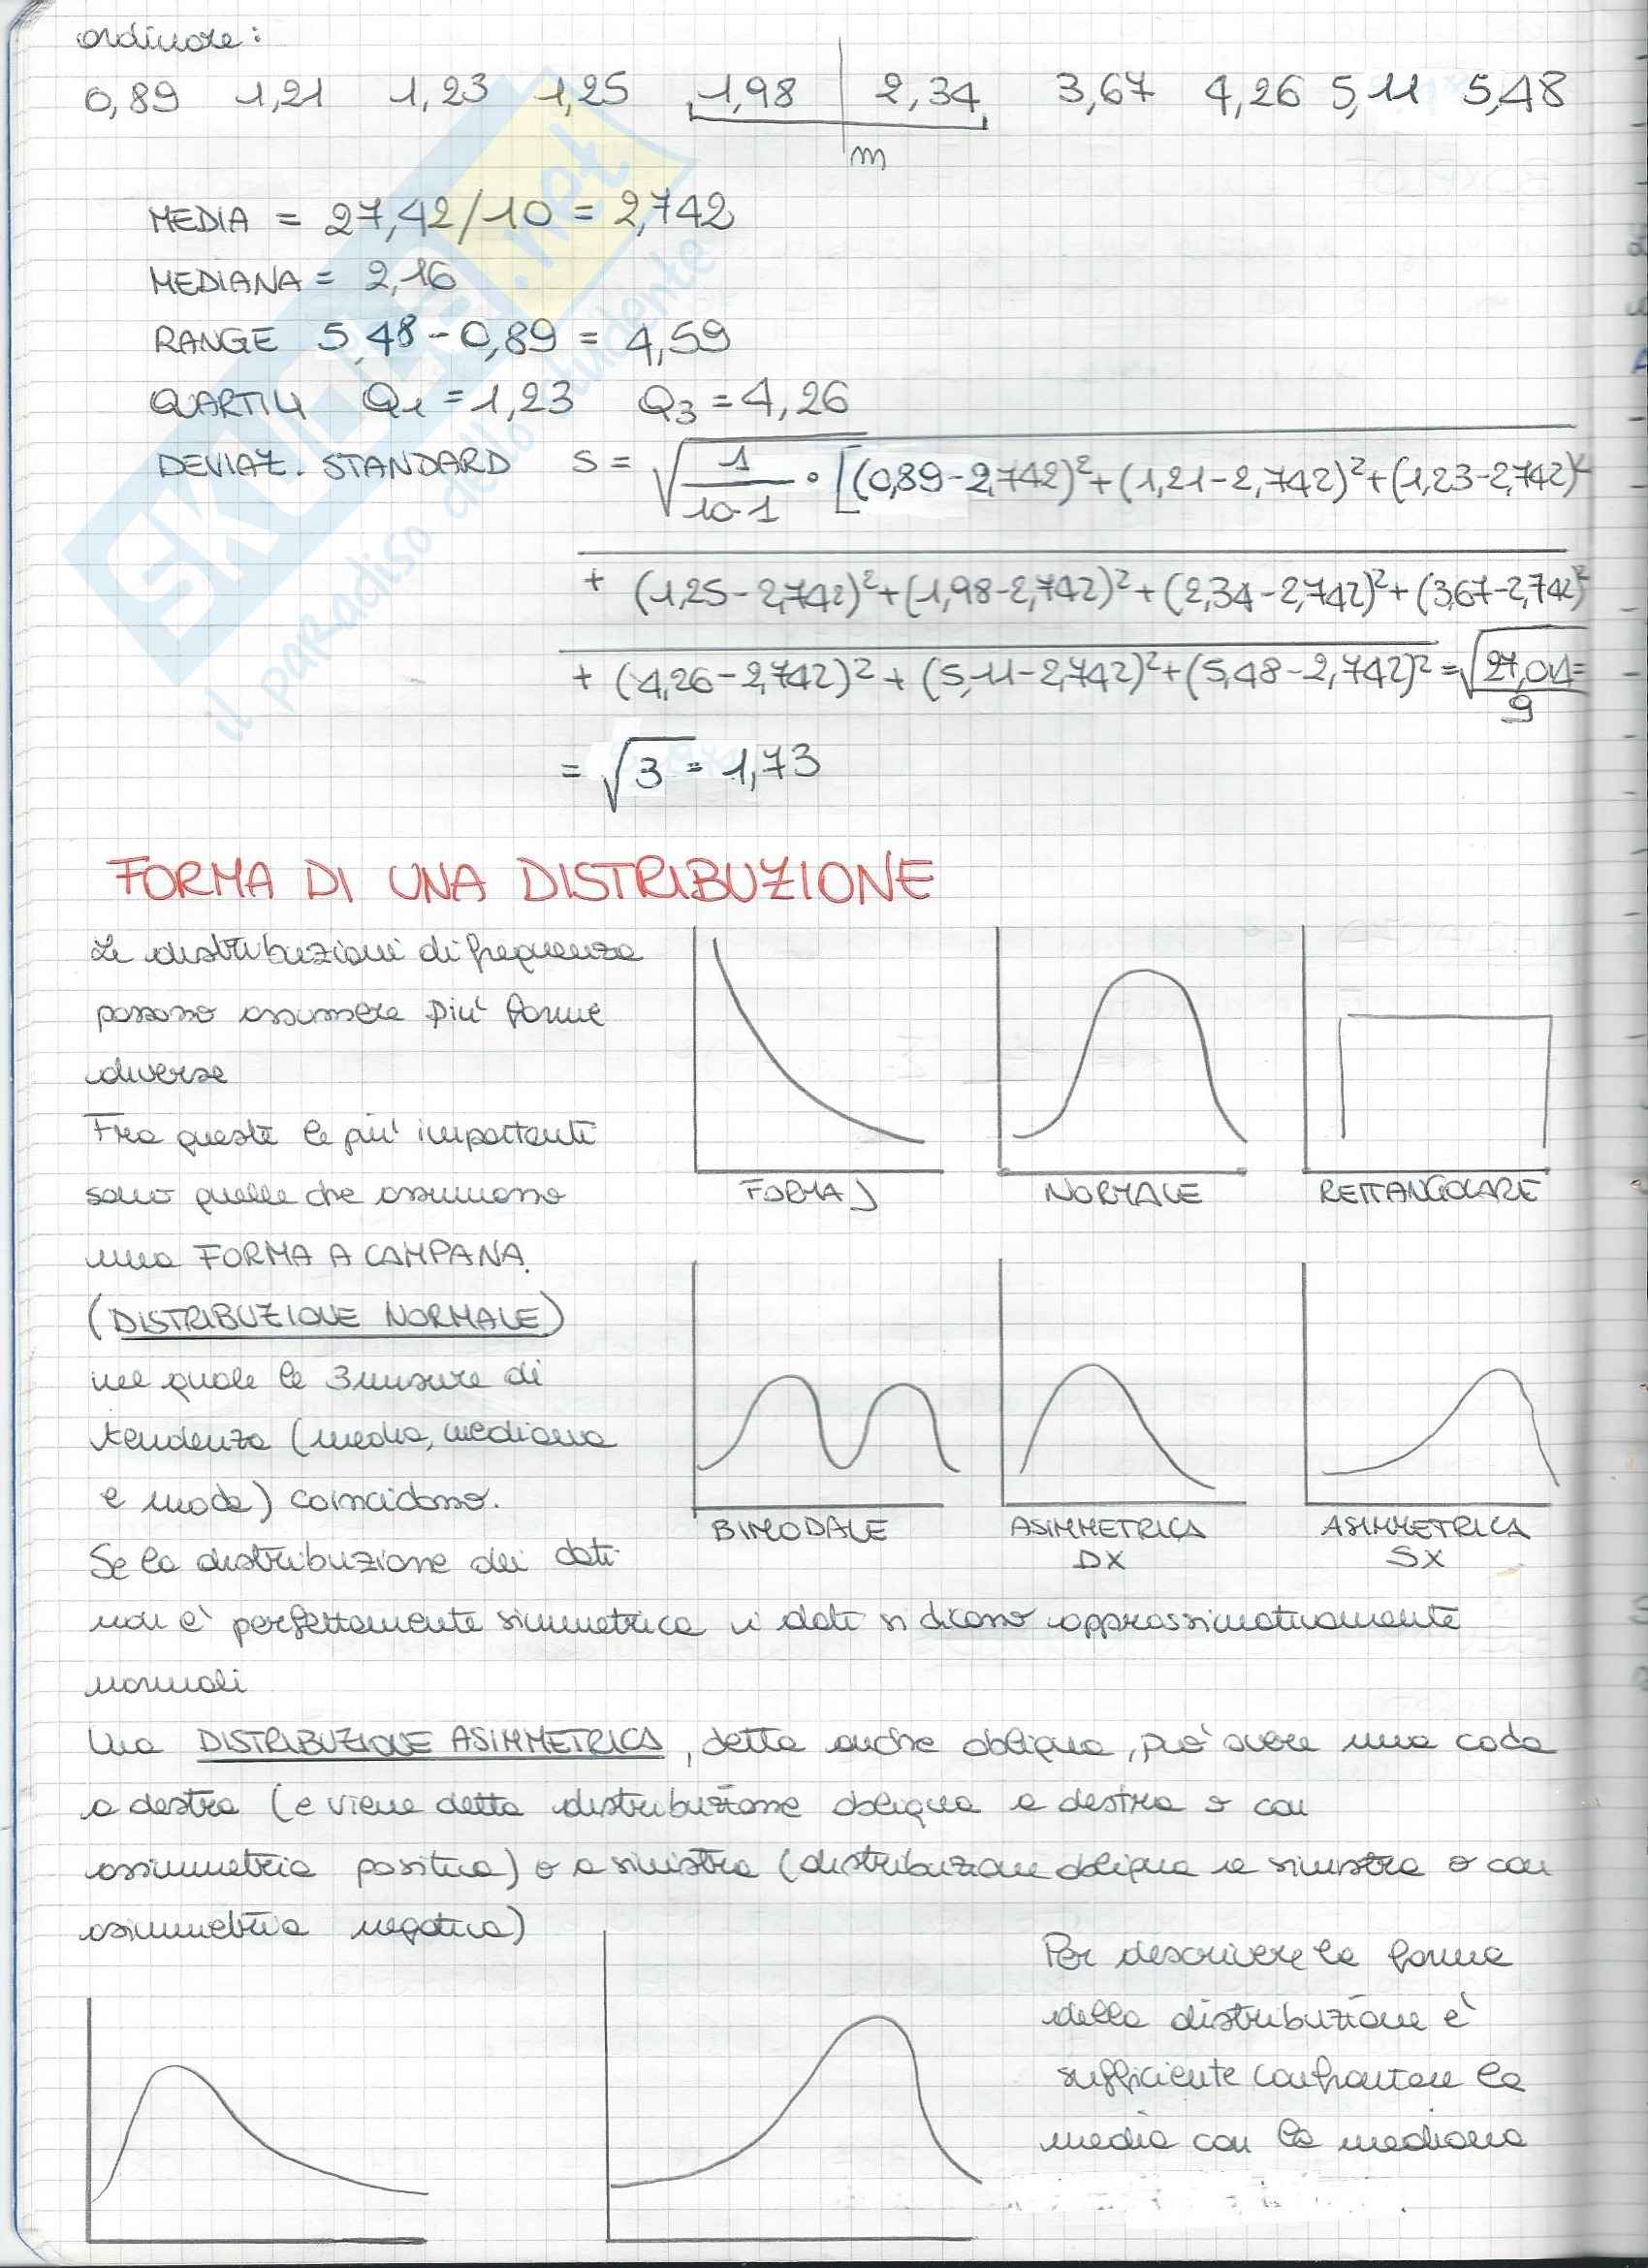 ordinare:
0,89 1,21 1,23 1,25 1,98 2,34 3,67 4,26 5,11 5,48
m
MEDIA = 27,42/10 = 2,742
MEDIANA = 2,16
RANGE 5,48-0,89 = 4,59
QUARTILI Q1 = 1,23 Q3 = 4,26
DEVIAZ. STANDARD S = √ 1/10-1 · [(0,89-2,742)²+(1,21-2,742)²+(1,23-2,742)²
+ (1,25-2,742)²+(1,98-2,742)²+(2,34-2,742)²+(3,67-2,742)²
+ (4,26-2,742)²+(5,11-2,742)²+(5,48-2,742)² = √27,01/9 =
= √3 = 1,73
FORMA DI UNA DISTRIBUZIONE
Le distribuzioni di frequenza
possono assumere più forme
diverse
Fra queste le più importanti
sono quelle che assumono
una FORMA A CAMPANA.
(DISTRIBUZIONE NORMALE)
nel quale le 3 misure di
tendenza (media, mediana
e moda) coincidono.
Se la distribuzione dei dati
non è perfettamente simmetrica i dati si dicono approssimativamente
normali
FORMA J
NORMALE
RETTANGOLARE
BIMODALE
ASIMMETRICA
DX
ASIMMETRICA
SX
Una DISTRIBUZIONE ASIMMETRICA, detta anche obliqua, può avere una coda
a destra (e viene detta distribuzione obliqua a destra o con
assimmetria positiva) o a sinistra (distribuzione obliqua a sinistra o con
asimmetria negativa)
Per descrivere la forma
della distribuzione è
sufficiente confrontare la
media con la mediana
SKUOLA.net
il paradiso dello studente